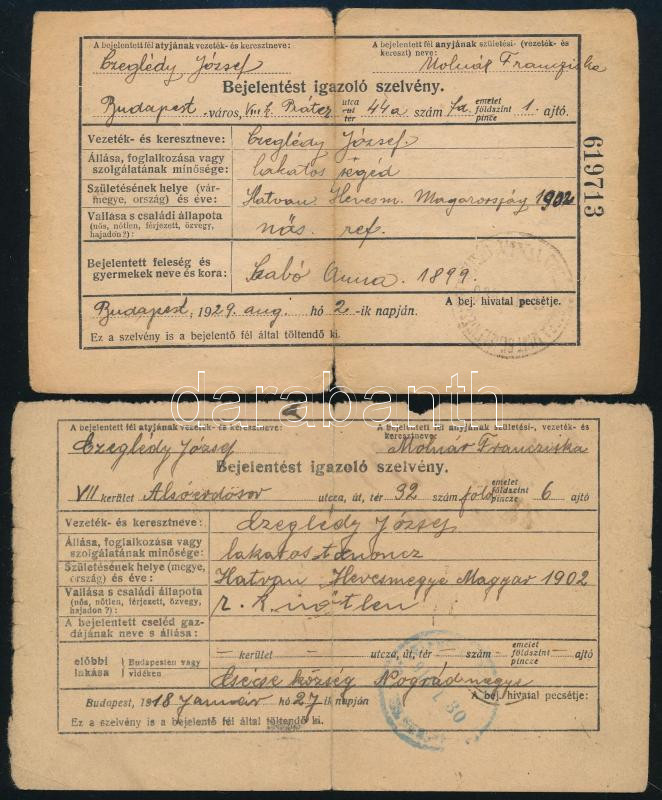 A bejelentett fél atyjának vezeték- és keresztneve:
A bejelentett fél anyjának születési- (vezeték- és kereszt) neve:
Czeglédy József
Molnár Franziska
Bejelentést igazoló szelvény.
Budapest -város, VIII. k. Práter utca -út tér 44a szám emelet földszint pince 1. ajtó.
Vezeték- és keresztneve: Czeglédy József.
Állása, foglalkozása vagy szolgálatának minősége: lakatos segéd
Születésének helye (vármegye, ország) és éve: Hatvan Hevesm. Magyarország 1902
Vallása s családi állapota (nős, nőtlen, férjezett, özvegy, hajadon?): nős. ref.
Bejelentett feleség és gyermekek neve és kora: Szabó Anna. 1899.
Budapest, 1929. aug. hó 2-ik napján.
A bej. hivatal pecsétje.
Ez a szelvény is a bejelentő fél által töltendő ki.
619713
darabanth
A bejelentett fél atyjának vezeték- és keresztneve:
A bejelentett fél anyjának születési-, vezeték- és keresztneve:
Czeglédy József
Molnár Francziska
Bejelentést igazoló szelvény.
VII kerület Alsóerdősor utcza, út, tér 32 szám föld emelet földszint pincze 6 ajtó
Vezeték- és keresztneve: Czeglédy József
Állása, foglalkozása vagy szolgálatának minősége: lakatos tanoncz
Születésének helye (megye, ország) és éve: Hatvan Hevesmegye Magyar 1902
Vallása s családi állapota (nős, nőtlen, férjezett, özvegy, hajadon?): r. k. nőtlen
A bejelentett cseléd gazdájának neve s állása:
előbbi lakása Budapesten vagy vidéken
— kerület — utcza, út, tér — szám — emelet földszint pincze — ajtó
Csécse község Nográdmegye
Budapest, 1918 Január hó 27 ik napján
A bej. hivatal pecsétje:
Ez a szelvény is a bejelentő fél által töltendő ki.